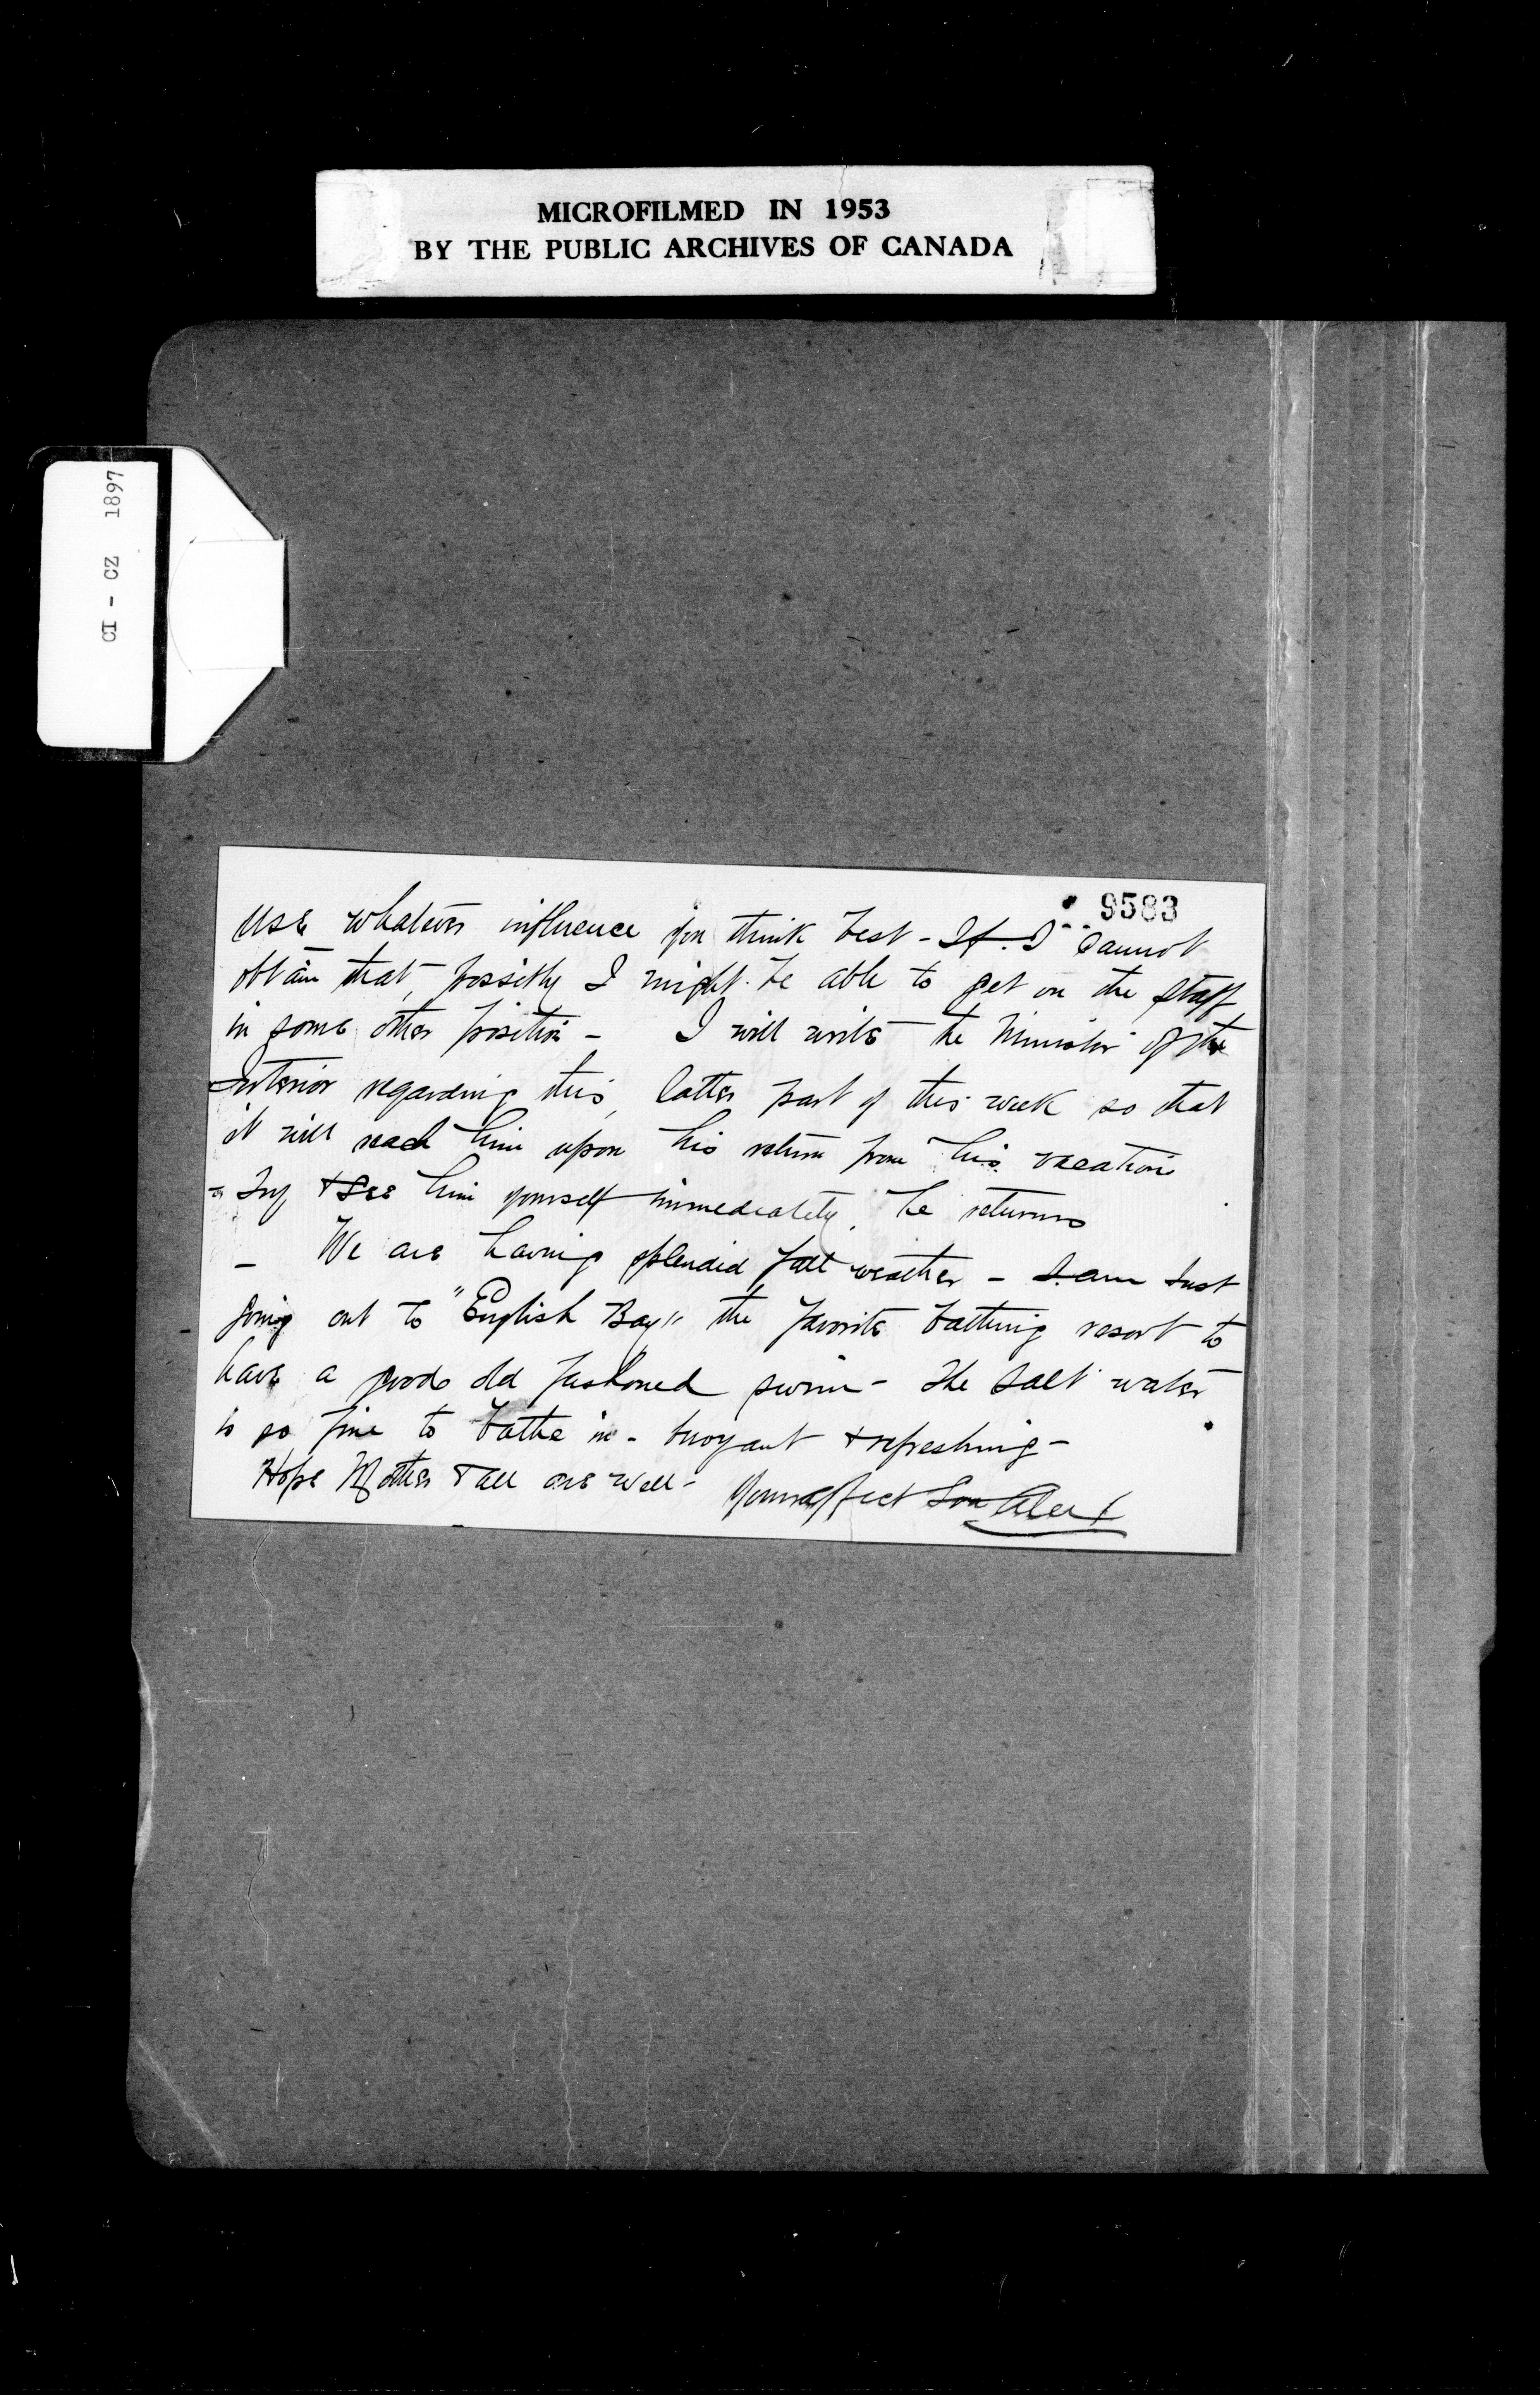 MICROFILMED IN 1953
BY THE PUBLIC ARCHIVES OF CANADA
CI - CZ 1897
9583
use whatever influence you think best - If I cannot
obtain that, possibly I might be able to get on the staff
in some other position - I will write the Minister of the
Interior regarding this, latter part of this week so that
it will reach him upon his return from his vacation
- Try & see him yourself immediately he returns
- We are having splendid fall weather - I am just
going out to "English Bay" the favorite bathing resort to
have a good old fashioned swim - The salt water
is so fine to bathe in - buoyant & refreshing -
Hope Mother & all are well - Your affect Son Alex